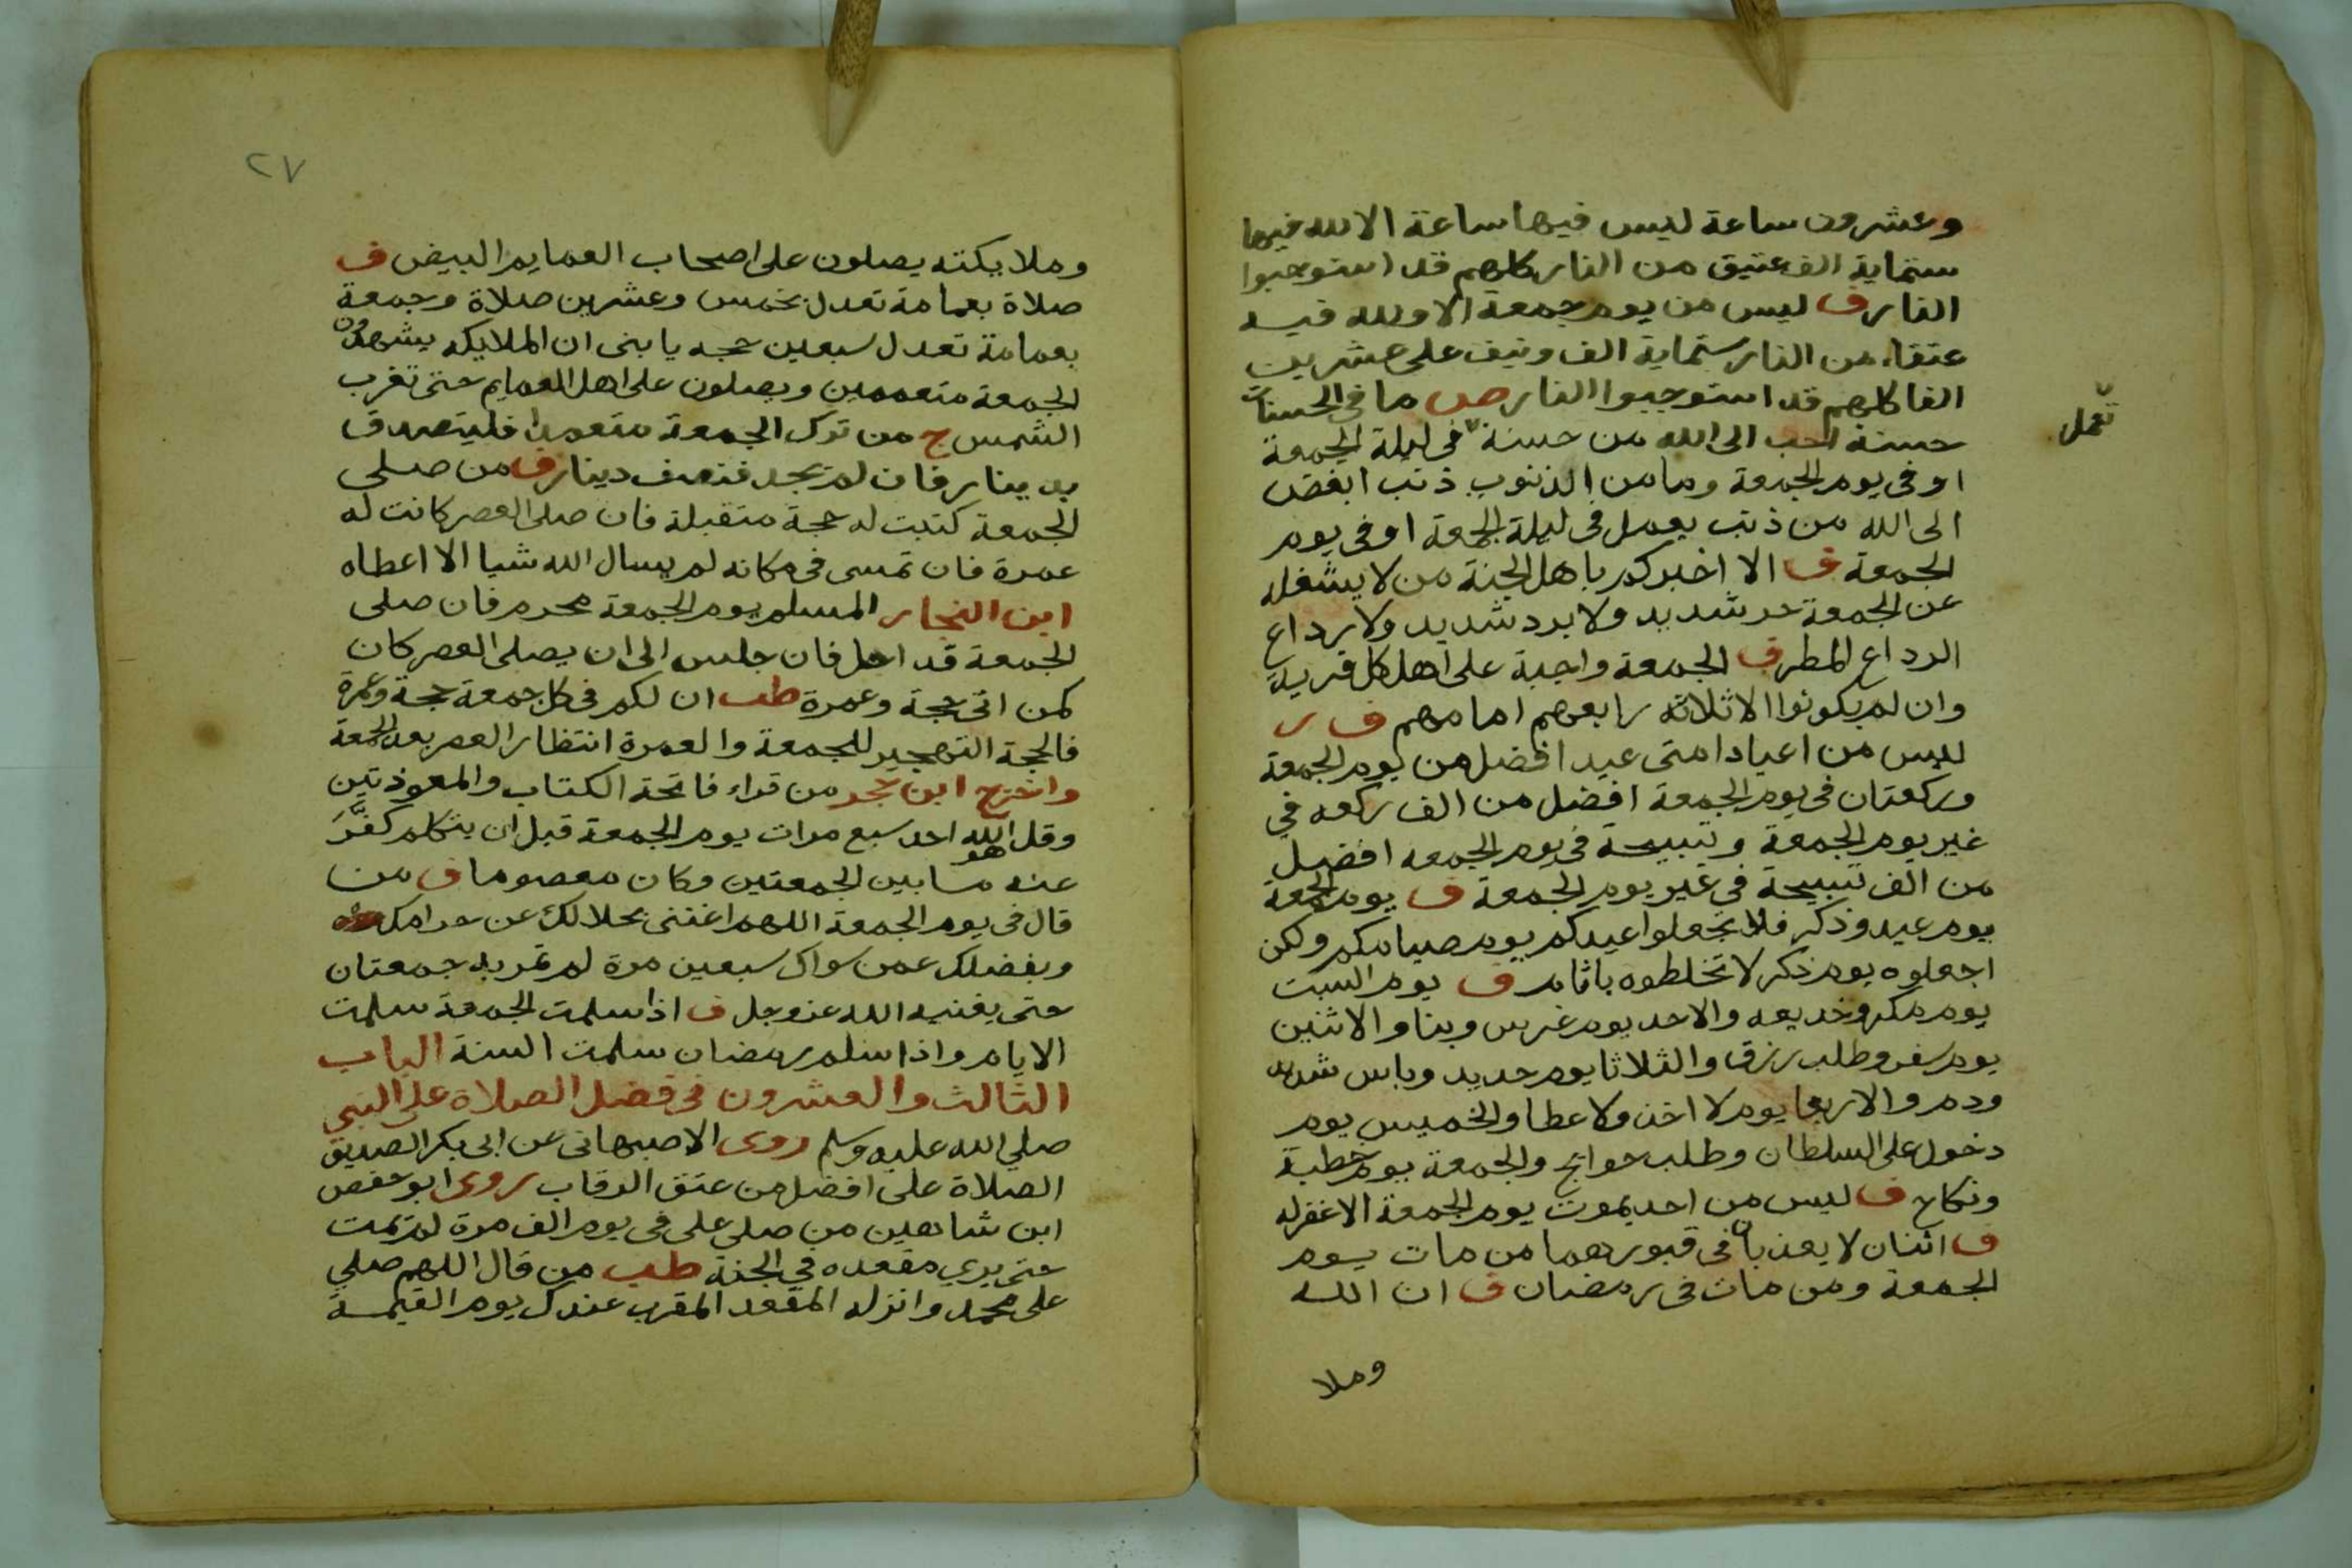 وعشرون ساعة ليس فيها ساعة الا لله فيها
ستماية الف عتيق من النار كلهم قد استوجبوا
النار ف ليس من يوم جمعة الا ولله فيه
عتقاء من النار ستماية الف ونيف على عشرين
الفا كلهم قد استوجبوا النار ص ما في الحسنات
حسنة احب الى الله من حسنة في ليلة الجمعة
تعمل
او في يوم الجمعة وما من الذنوب ذنب ابغض
الى الله من ذنب يعمل في ليلة الجمعة او في يوم
الجمعة ف الا اخبركم باهل الجنة من لا يشغله
عن الجمعة حر شديد ولا برد شديد ولا رداع
الرداع المطر ف الجمعة واجبة على اهل كل قرية
وان لم يكونوا الا ثلاثة رابعهم امامهم ف ر
ليس من اعياد امتى عيد افضل من يوم الجمعة
وركعتان في يوم الجمعة افضل من الف ركعه في
غير يوم الجمعة وتسبيحة في يوم الجمعه افضل
من الف تسبيحة في غير يوم الجمعة ف يوم الجمعة
يوم عيد وذكر فلا تجعلوا عيدكم يوم صيامكم ولكن
اجعلوه يوم ذكر لا تخلطوه باثام ف يوم السبت
يوم مكر وخديعه والاحد يوم غرس وبنا والاثنين
يوم سفر وطلب رزق والثلاثا يوم حديد وباس شديد
ودم والاربعا يوم لا اخذ ولا عطا والخميس يوم
دخول على السلطان وطلب حوايج والجمعة يوم خطبة
ونكاح ف ليس من احد يموت يوم الجمعة الا غفر له
ف اثنان لا يعذبان في قبورهما من مات يوم
الجمعة ومن مات في رمضان ف ان الله
وملا
٢٧
وملايكته يصلون على اصحاب العمايم البيض ف
صلاة بعمامة تعدل بخمس وعشرين صلاة وجمعة
بعمامة تعدل سبعين حجه يا بنى ان الملايكه يشهدون
الجمعة متعممين ويصلون على اهل العمايم حتى تغرب
الشمس ج من ترك الجمعة متعمدا فليتصدق
بدينار فان لم يجد فنصف دينار ف من صلى
الجمعة كتبت له حجة متقبلة فان صلى العصر كانت له
عمرة فان تمسى في مكانه لم يسال الله شيا الا اعطاه
ابن النجار المسلم يوم الجمعة محرم فان صلى
الجمعة قد احل فان جلس الى ان يصلى العصر كان
كمن اتى حجة وعمرة طب ان لكم في كل جمعة حجة وعمرة
فالحجة التهجير للجمعة والعمرة انتظار العصر بعد الجمعة
واخرج ابن حجر من قراء فاتحة الكتاب والمعوذتين
وقل هو الله احد سبع مرات يوم الجمعة قبل ان يتكلم كفر
عنه ما بين الجمعتين وكان معصوما ف من
قال في يوم الجمعة اللهم اغننى بحلالك عن حرامك
وبفضلك عمن سواك سبعين مرة لم تمر به جمعتان
حتى يغنيه الله عز وجل ف اذا سلمت الجمعة سلمت
الايام واذا سلم رمضان سلمت السنة الباب
الثالث والعشرون في فضل الصلاة على النبي
صلي الله عليه وسلم روى الاصبهانى عن ابى بكر الصديق
الصلاة على افضل من عتق الرقاب روى ابو حفص
ابن شاهين من صلى على في يوم الف مرة لم يمت
حتى يري مقعده في الجنة طب من قال اللهم صلي
على محمد وانزله المقعد المقرب عندك يوم القيمة